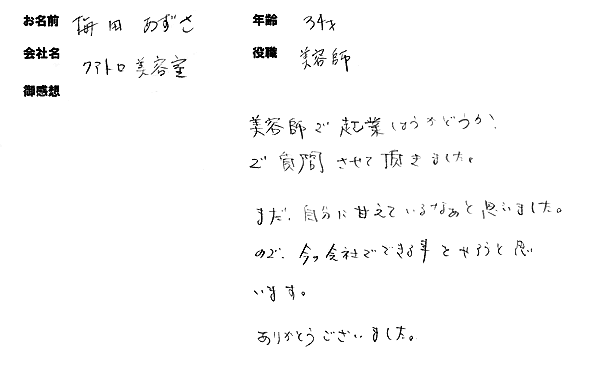 お名前 梅田 あずさ 年齢 34才
会社名 クアトロ美容室 役職 美容師
御感想
美容師で起業はうかどうか、
ご質問させて頂きました。
まだ、自分に甘えているなぁと思いました。
ので、今の会社でできる事をやろうと思
います。
ありがとうございました。